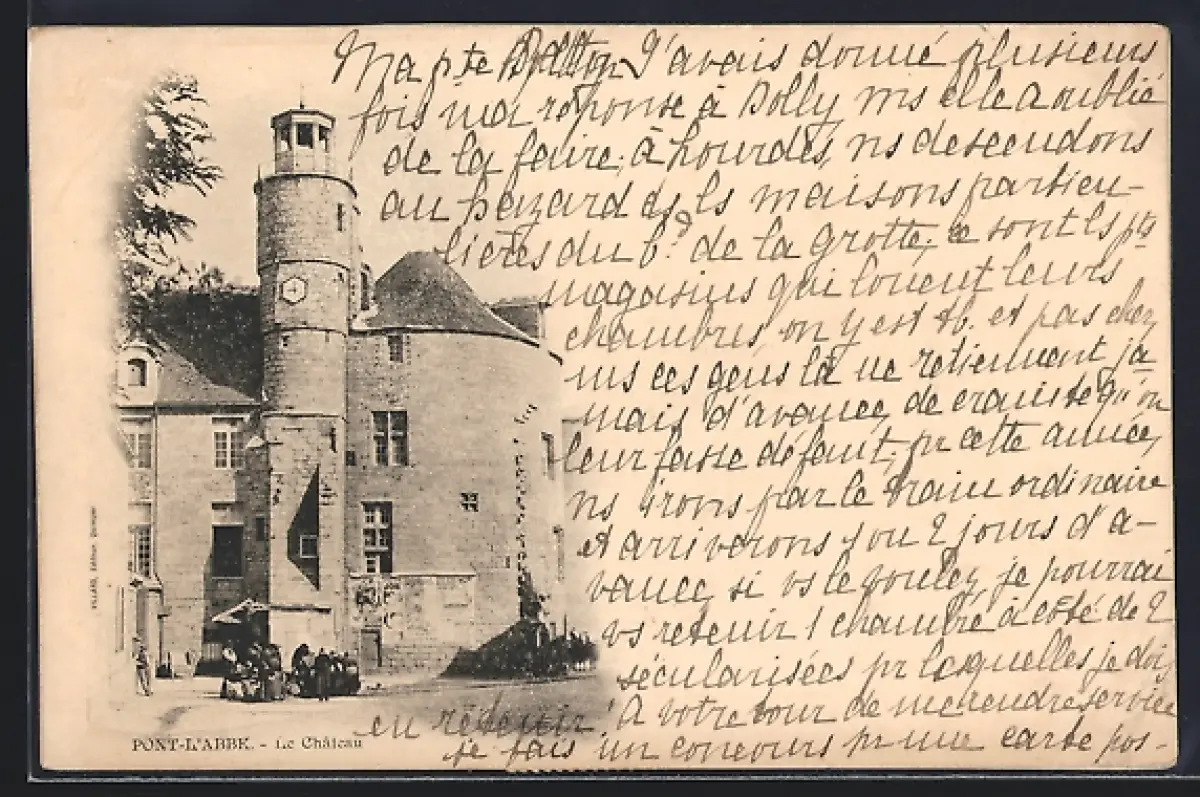 Ma pte J'avais donné plusieurs
fois ma réponse à Dolly ms elle a oublié
de la faire; à Lourdes, ns descendons
au hazard ds ls maisons particu-
lières du bd de la Grotte; ce sont ls pts
magasins qui louent leurs
chambres, on y est tb. et pas cher,
ms ces gens là ne retiennent ja
mais d'avance, de crainte qu'on
leur fasse défaut; pr cette année,
ns irons par le train ordinaire
et arriverons 1 ou 2 jours d'a-
vance, si vs le voulez, je pourrai
vs retenir 1 chambre à côté de 2
sécularisées pr lesquelles je dois
en retenir A votre tour de me rendre service
je fais un concours pr une carte pos-
PONT-L'ABBÉ. - Le Château
VILLARD, Editeur, Quimper